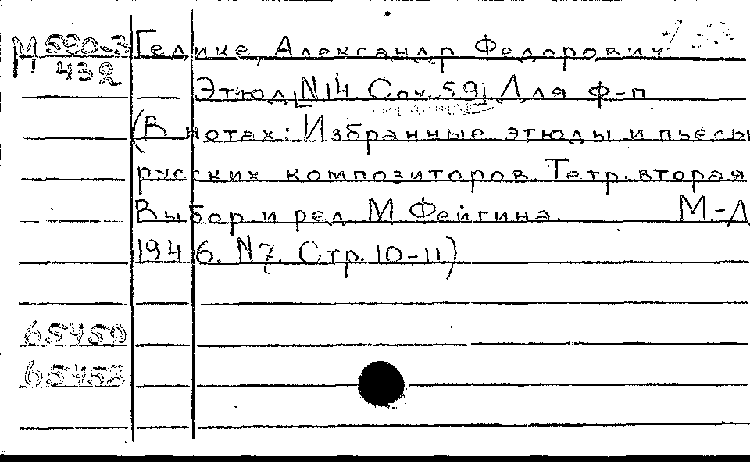 М 520-3 Гедике, Александр Федорович
432
Этюд N14 Соч. 59 Для ф-п
(В нотах: Избранные этюды и пьесы
русских композиторов. Тетр. вторая
Выбор и ред. М. Фейгина М-Л
1946. N7. Стр. 10-11)
65450
65453